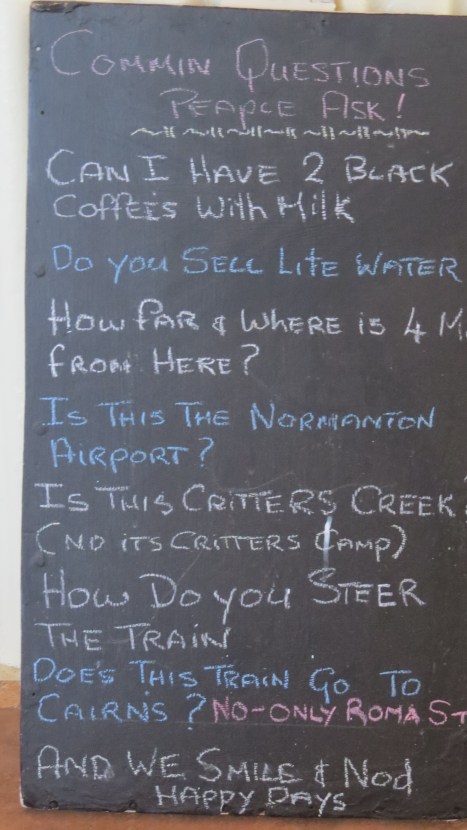 COMMIN QUESTIONS
PEAPLE ASK!
CAN I HAVE 2 BLACK
COFFEES WITH MILK
DO YOU SELL LITE WATER
HOW FAR & WHERE IS 4 M
FROM HERE?
IS THIS THE NORMANTON
AIRPORT?
IS THIS CRITTERS CREEK
(NO ITS CRITTERS CAMP)
HOW DO YOU STEER
THE TRAIN
DOE'S THIS TRAIN GO TO
CAIRNS? NO-ONLY ROMA ST
AND WE SMILE & NOD
HAPPY DAYS